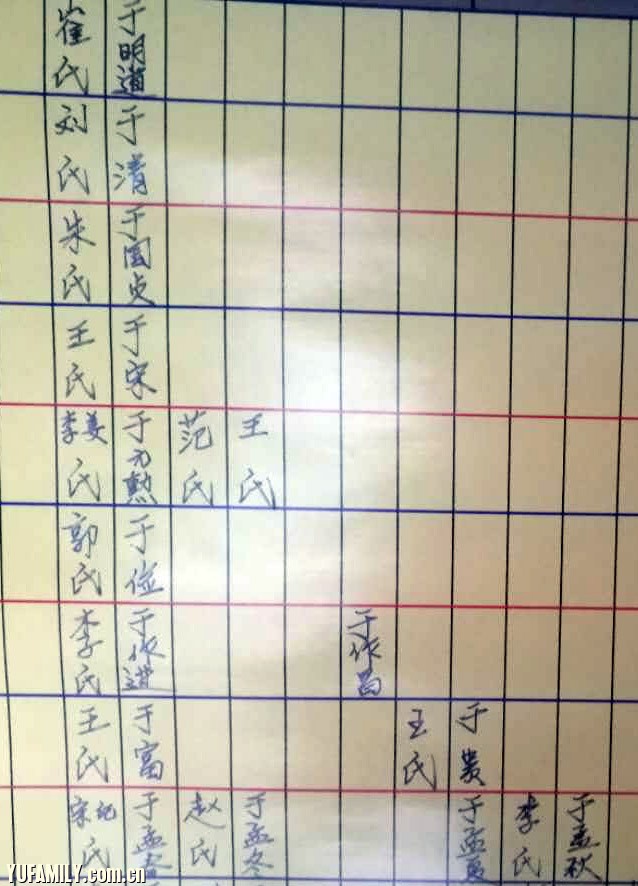 崔氏 于明道
刘氏 于清
朱氏 于国贞
王氏 于宋
李姜氏 于元勲 范氏 王氏
郭氏 于位
李氏 于作进 于作昌
王氏 于富 王氏 于贵
宋纪氏 于孟春 赵氏 于孟冬 于孟夏 李氏 于孟秋
YUFAMILY.com.cn